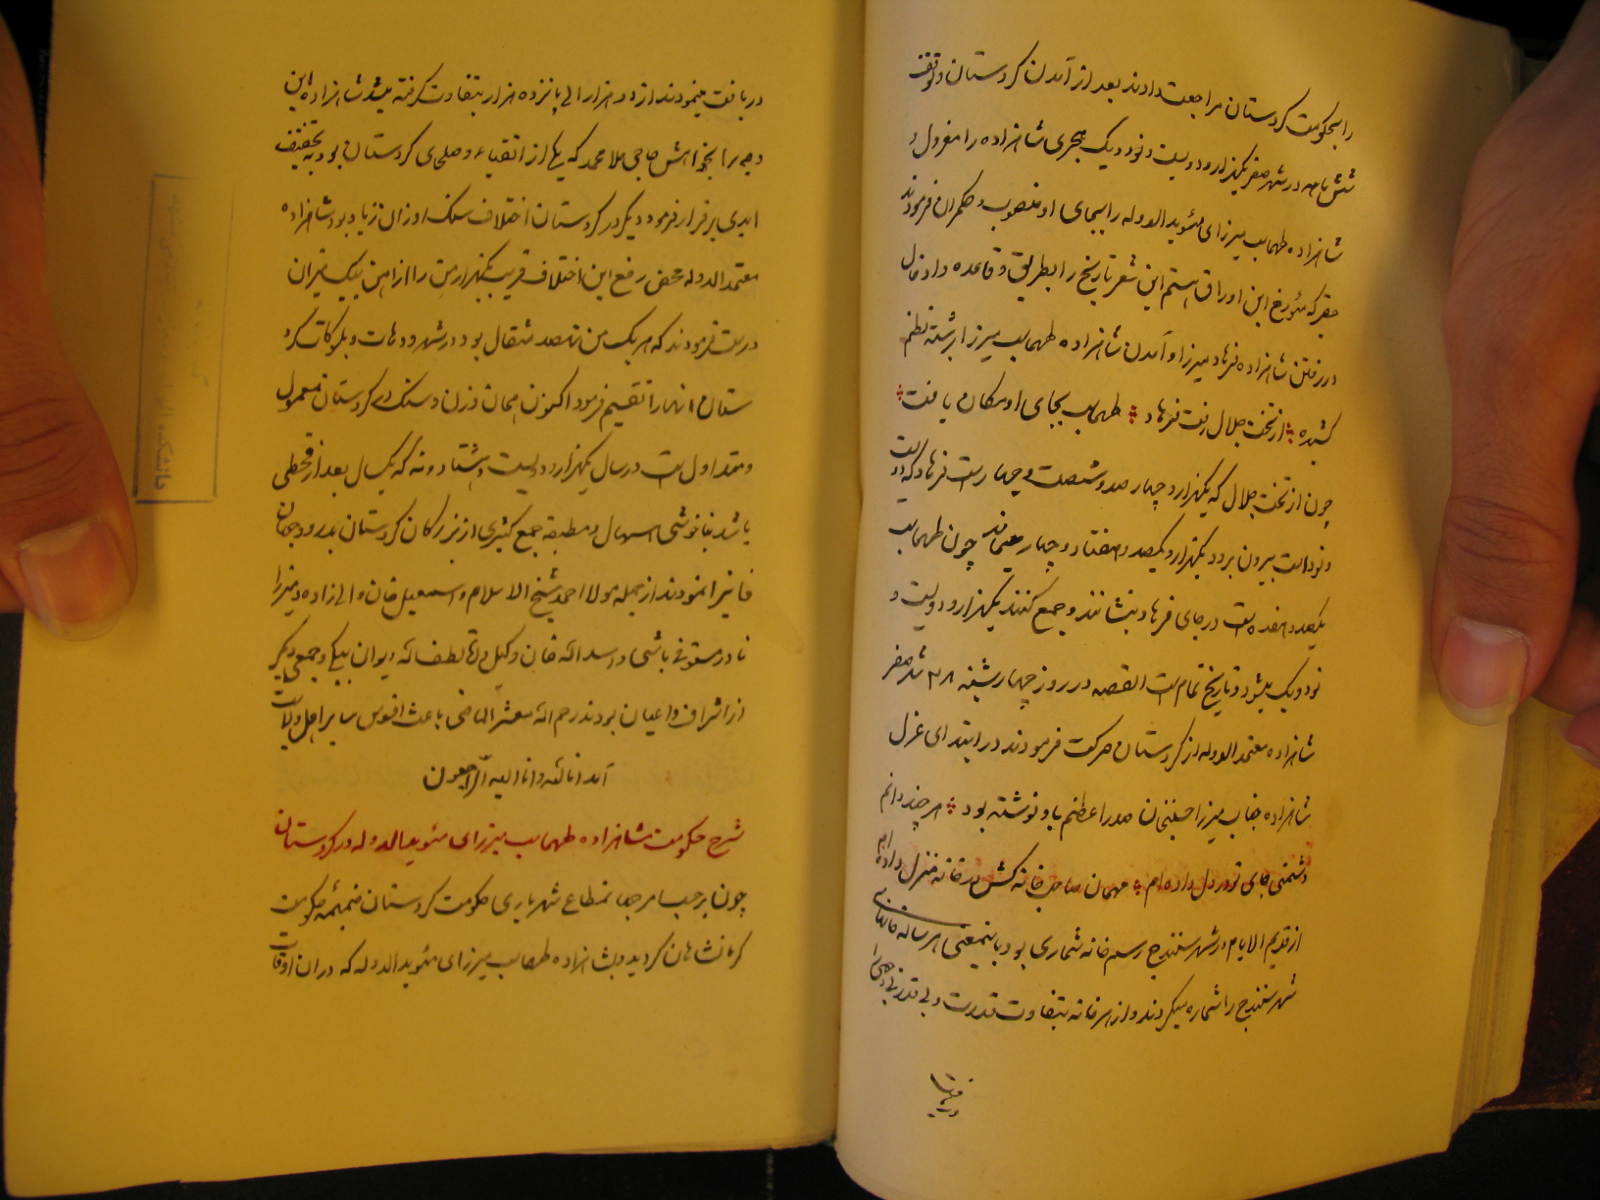 را بحکومت کردستان مراجعت دادند بعد از آمدن کردستان و توقف
شش ماه در شهر صفر یکهزار و دویست و نود و یک هجری شاهزاده را معزول و
شاهزاده طهماسب میرزای مؤیدالدوله را بجای او منصوب و حکمران فرمودند
حقیر که مؤرخ این اوراق هستم این شعر تاریخ را بطریق و قاعده داد خال
در رفتن شاهزاده فرهاد میرزا و آمدن شاهزاده طهماسب میرزا برشته نظم
کشیده از تخت جلال رفت فرهاد طهماسب بجای او مکان یافت
چون از تخت جلال که یکهزار و چهار صد و شصت و چهار است فرهاد که دویست
و نود است بیرون برود یکهزار و یکصد و هفتاد و چهار میماند چون طهماسب
یکصد و هفده است در جای فرهاد بنشانند و جمع کنند یکهزار و دویست و
نود و یک میشود و تاریخ تمام است القصه در روز چهارشنبه ۲۸ شهر صفر
شاهزاده معتمدالدوله از کردستان حرکت فرمودند در ابتدای عزل
شاهزاده جناب میرزا حسینخان صدر اعظم باو نوشته بود هر چند دانم
دشمنی جای تو در دل داده ام مهمان صاحب خانه کش در خانه منزل داده ام
از قدیم الایام در شهر سنندج رسم خانه شماری بود باینمعنی هر ساله خانهای
شهر سنندج را شماره میکردند و از هر خانه بتفاوت قدرت و بی قدرتی وجهی را
دریافت
دریافت مینمودند از دو هزار الی پانزده هزار بتفاوت گرفته میشد شاهزاده این
وجه را بخواهش حاجی ملا محمد که یکی از اتقیاء و صلحای کردستان بود به تخفیف
ابدی برقرار فرمود دیگر در کردستان اختلاف سنک اوزان زیاد بود شاهزاده
معتمدالدوله محض رفع این اختلاف قریب یکهزار من را از آهن بیک میزان
درست فرمودند که هر یک من نهصد مثقال بود در شهر و دهات و بلوکات کرد
ستان انها را تقسیم فرمود اکنون همان وزن و سنک در کردستان معمول
و متداول است در سال یکهزار و دویست و هشتاد و نه که یکسال بعد از قحطی
باشد بناخوشی اسهال و مطبقه جمع کثیری از بزرکان کردستان بدرود جهان
فانی را نمودند از جمله مولانا احمد شیخ الاسلام و اسمعیل خان والی زاده و میرزا
نادر مستوفی باشی و اسدالله خان وکیل و لطف الله دیوان بیکی و جمعی دیگر
از اشراف و اعیان بودند رحم الله معشر الماضی باعث افسوس سایر اهل ولایت
آمد انا لله و انا الیه راجعون
شرح حکومت شاهزاده طهماسب میرزای مؤیدالدوله در کردستان
چون برحسب امر جهانمطاع شهریاری حکومت کردستان ضمیمه حکومت
کرمانشاهان کردید و شاهزاده طهماسب میرزای مؤیدالدوله که در ان اوقات